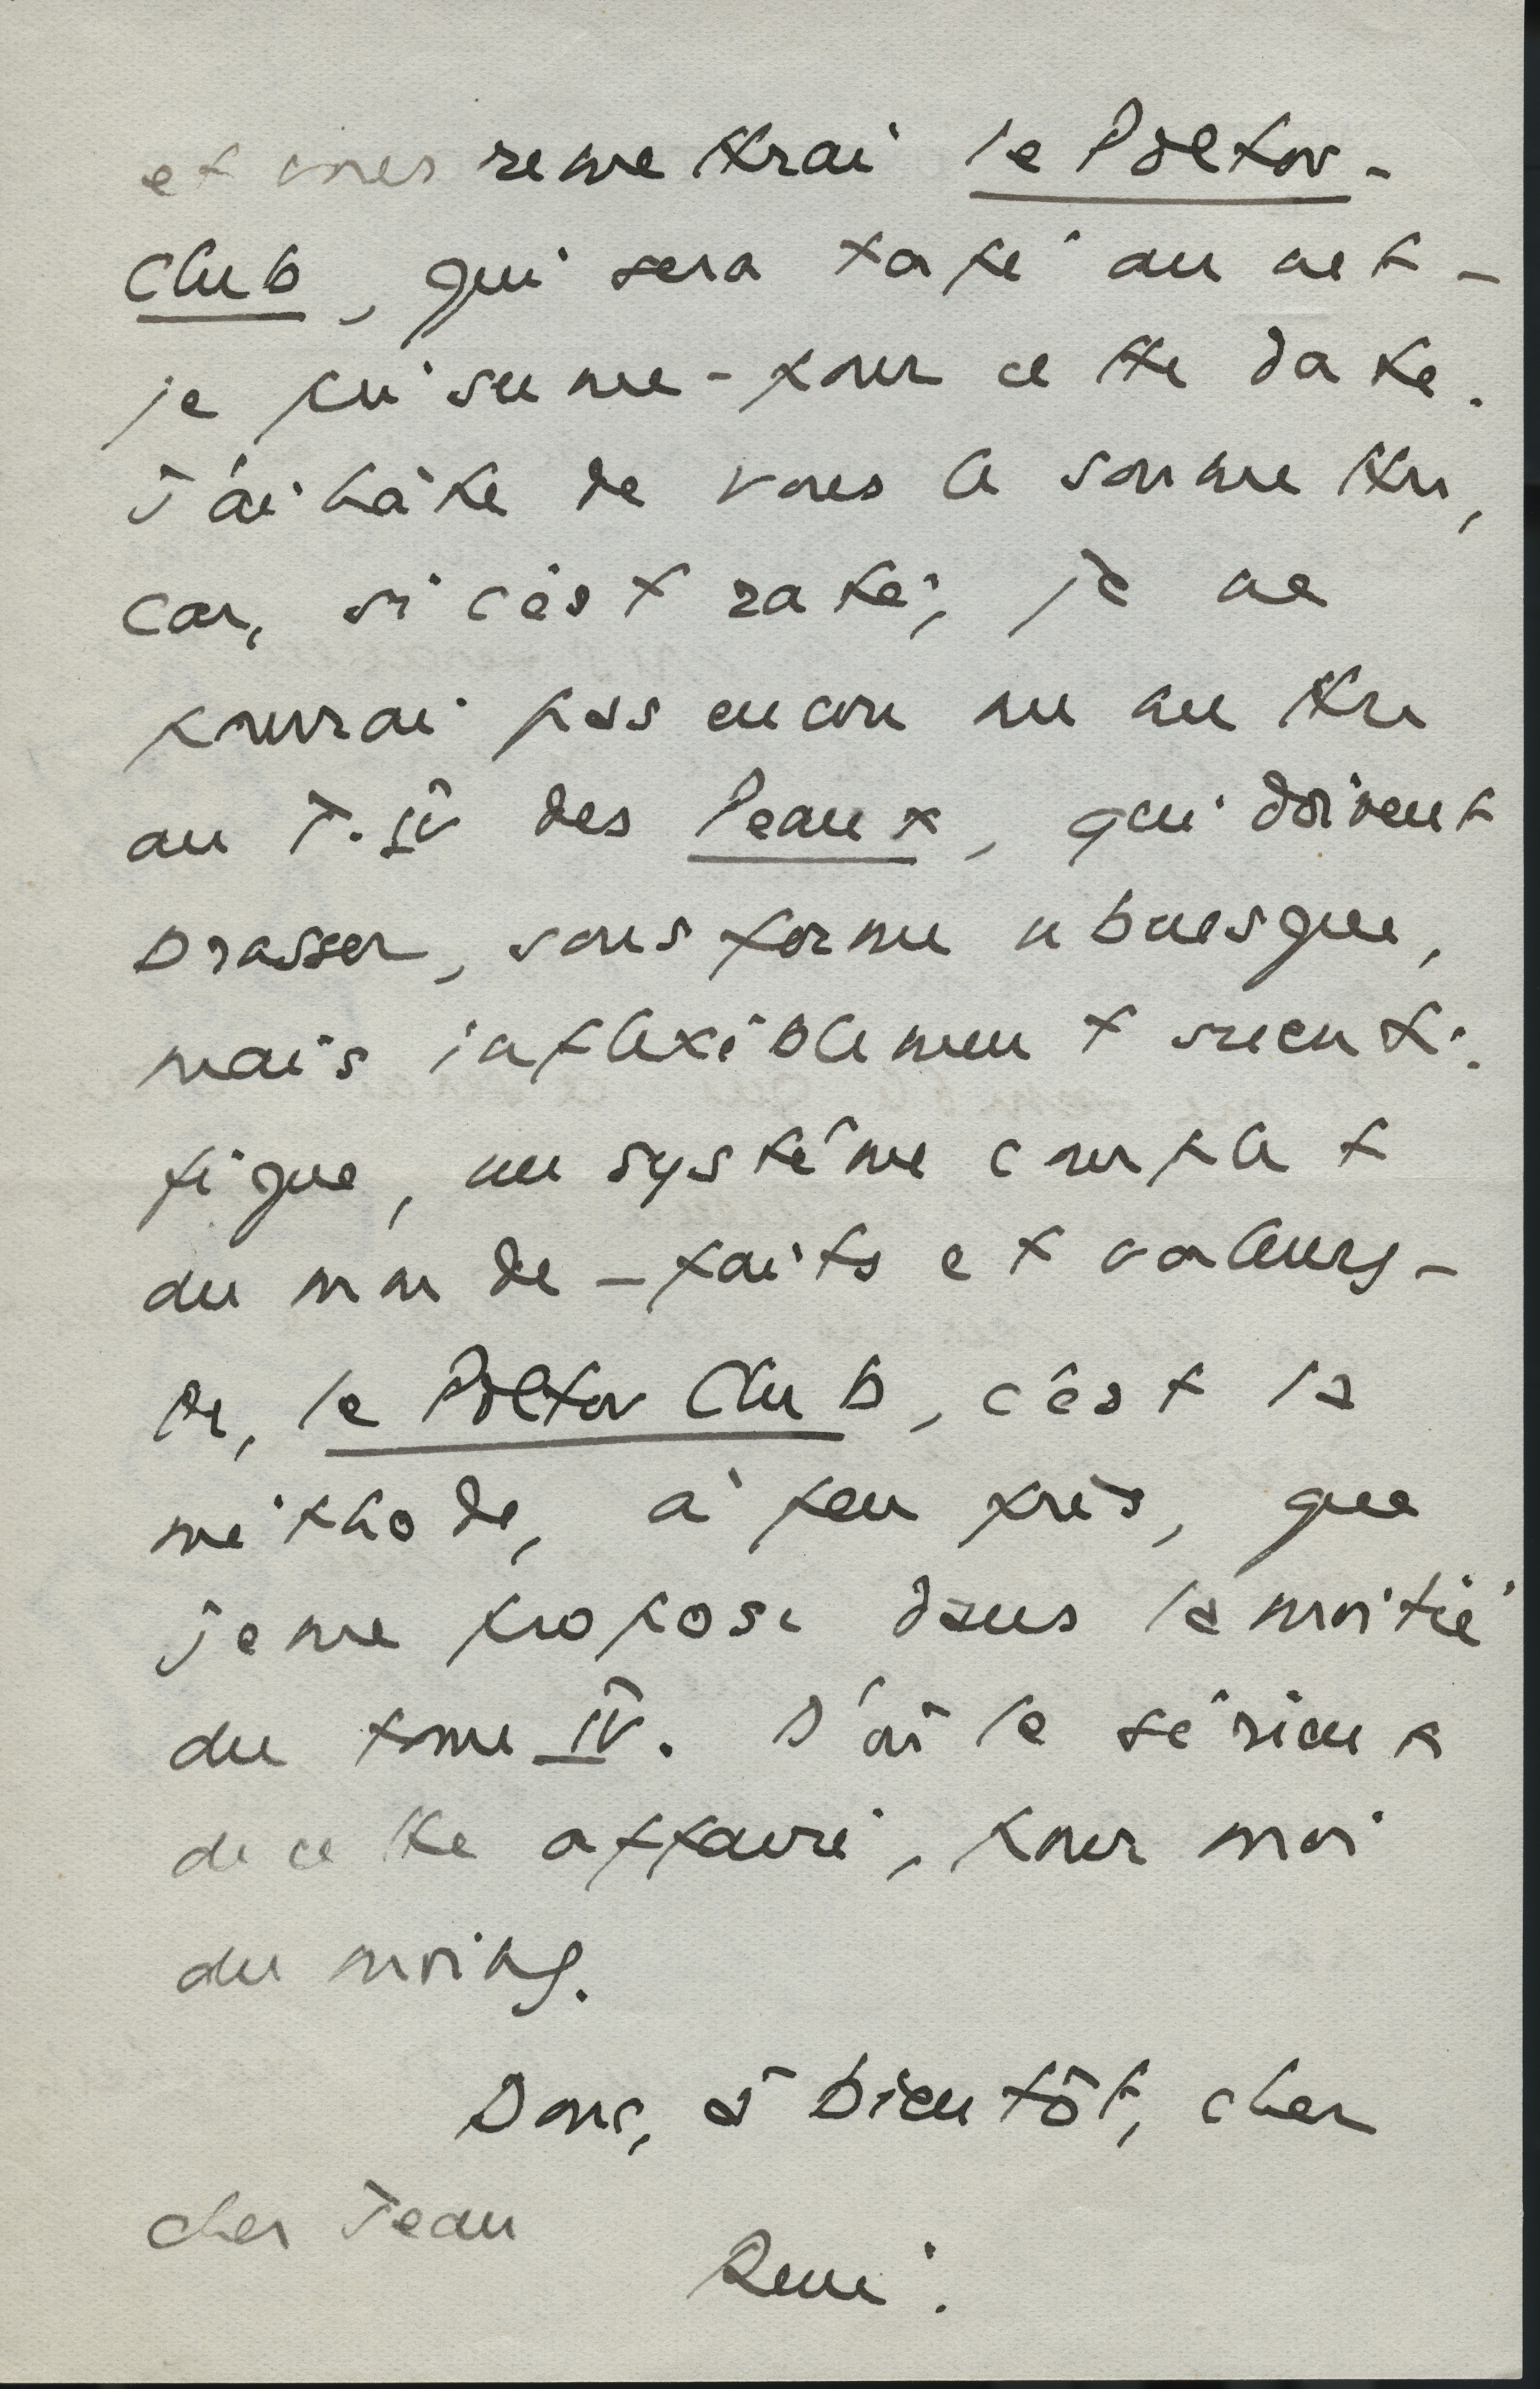 et vous remettrai le Poltor-
Club, qui sera tapé au net -
je présume - pour cette date.
J'ai hâte de vous le soumettre,
car, si c'est raté, je ne
pourrai pas encore me mettre
au T. IV des Peaux, qui doivent
brasser, sous forme ubuesque,
mais inflexiblement scienti-
fique, un système complet
du monde - faits et valeurs -
Or, le Poltor Club, c'est la
méthode, à peu près, que
je me propose dans la moitié
du tome IV. D'où le sérieux
de cette affaire, pour moi
du moins.
Donc, à bientôt, cher
cher Jean
René.